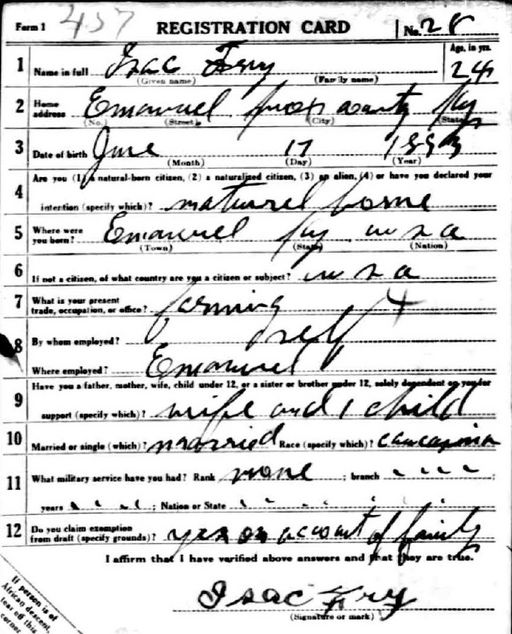 Form 1 457 REGISTRATION CARD No. 28
1 Name in full Isac Fry Age, in yrs. 24
(Given name) (Family name)
2 Home address Emanuel Knox County Ky
(No.) (Street) (City) (State)
3 Date of birth June 17
(Month) (Day) (Year)
Are you (1) a natural-born citizen, (2) a naturalized citizen, (3) an alien, (4) or have you declared your
4 intention (specify which)? naturel borne
5 Where were you born? Emanuel Ky usa
(Town) (State) (Nation)
6 If not a citizen, of what country are you a citizen or subject? usa
7 What is your present trade, occupation, or office? farming
8 By whom employed? self
Where employed? Emanuel
9 Have you a father, mother, wife, child under 12, or a sister or brother under 12, solely dependent on you for
support (specify which)? wife and 1 child
10 Married or single (which)? married Race (specify which)? caucasian
11 What military service have you had? Rank none ; branch
years ; Nation or State
12 Do you claim exemption from draft (specify grounds)? yes on account of family
I affirm that I have verified above answers and that they are true.
Isac Fry
(Signature or mark)
If person is of
African descent,
tear off this
corner